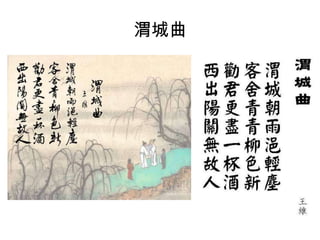 渭城曲
渭城曲
王維
渭城朝雨浥輕塵
客舍青青柳色新
勸君更盡一杯酒
西出陽關無故人
渭城曲
王維
渭城朝雨浥輕塵
客舍青青柳色新
勸君更盡一杯酒
西出陽關無故人